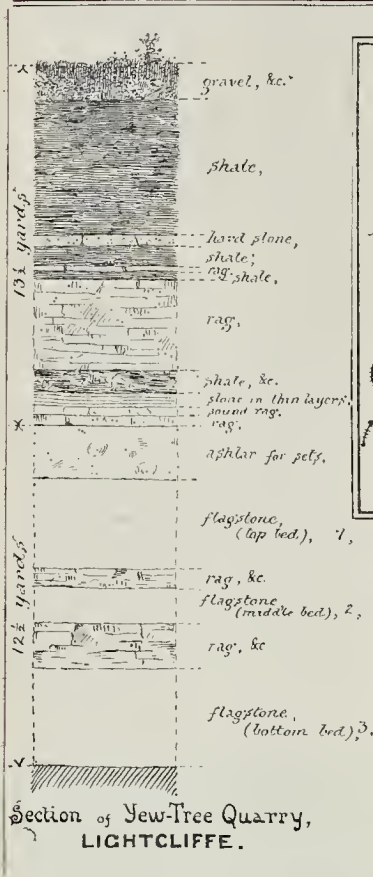 gravel, &c.
shale,
hard stone,
shale;
rag.
shale,
rag,
shale, &c.
stone in thin layers.
sound rag.
rag.
ashlar for sets,
flagstone,
(top bed), 1,
rag, &c.
flagstone
(middle bed), 2,
rag, &c
flagstone,
(bottom bed), 3.
13½ yards
12½ yards
Section of Yew-Tree Quarry,
LIGHTCLIFFE.